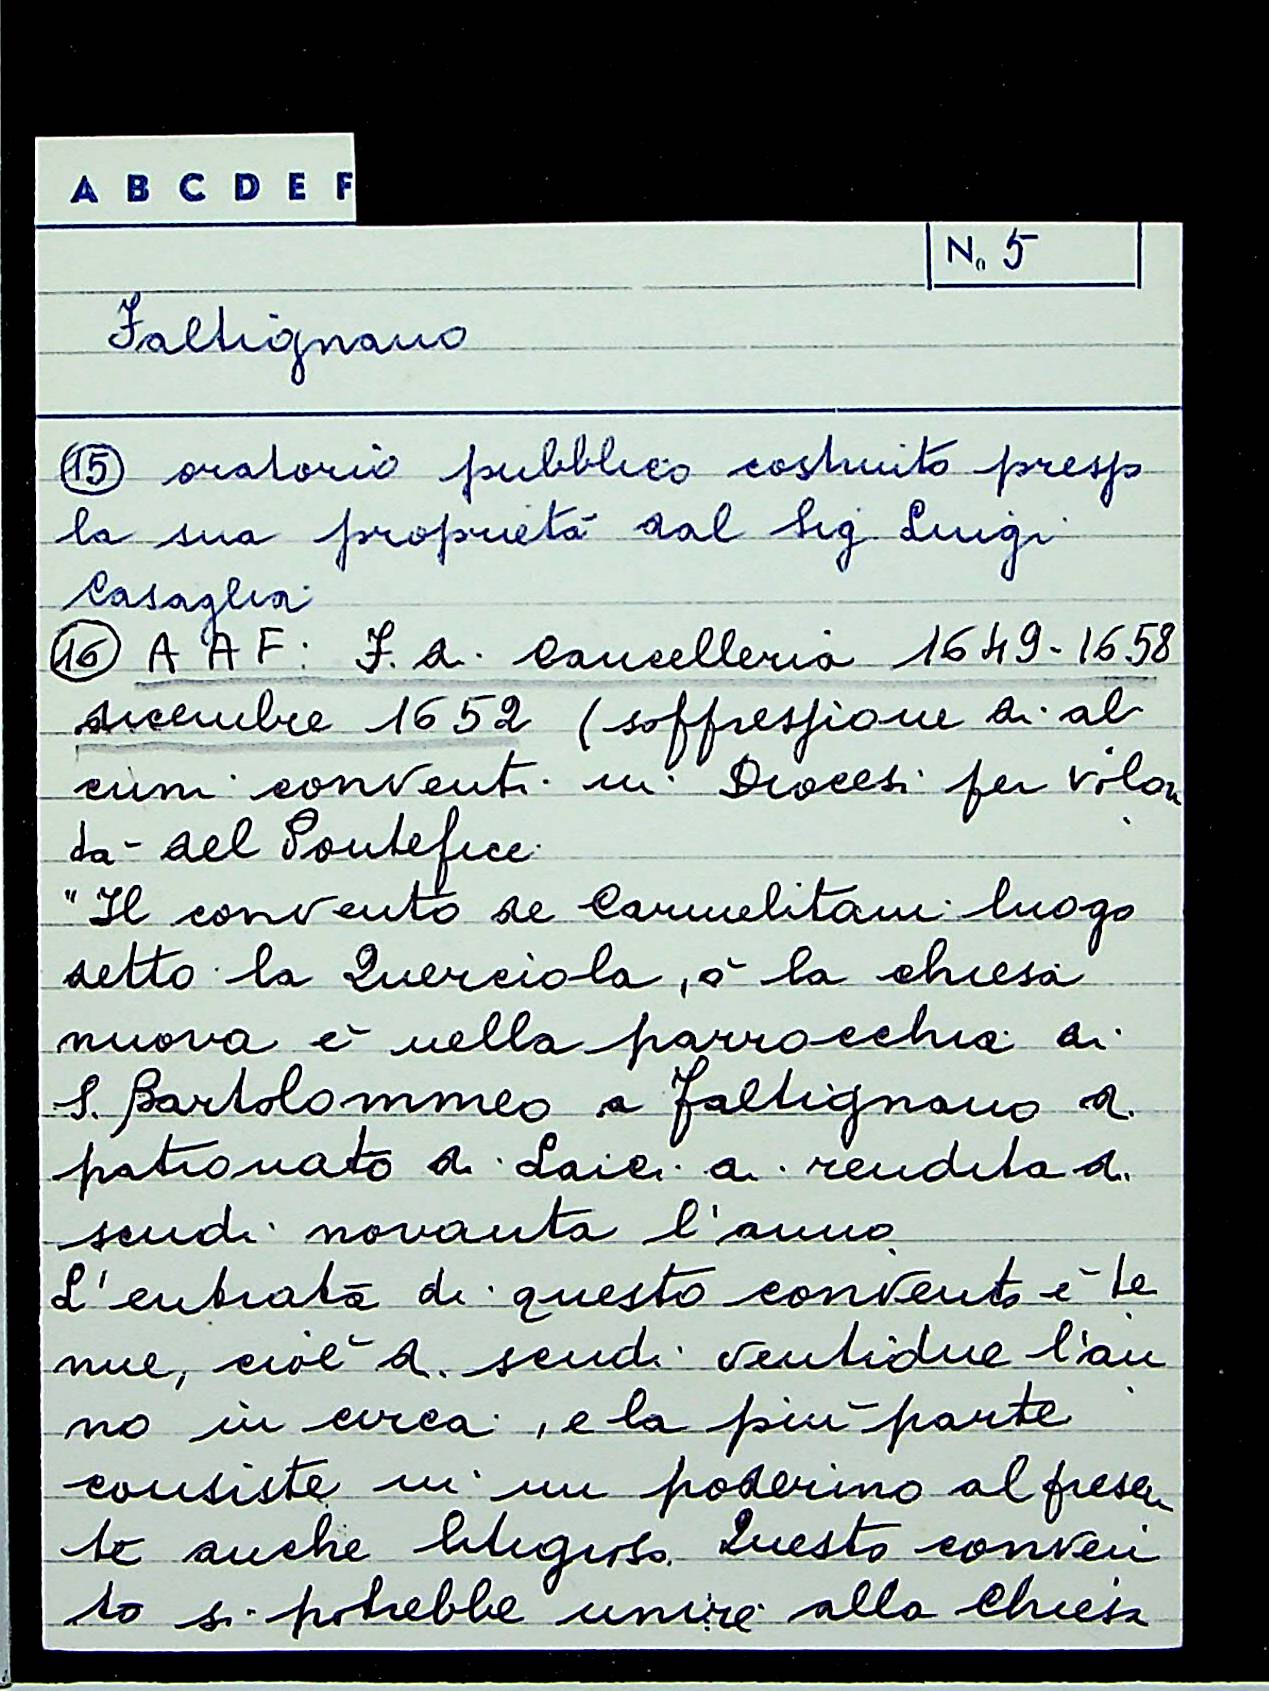 A B C D E F
N. 5
Faltignano
(15) oratorio pubblico costruito presso
la sua proprietà dal Sig. Luigi
Casaglia
(16) A A F: F. d. Cancelleria 1649-1658
dicembre 1652 (soppressione di al
cuni conventi in Diocesi per volon
tà del Pontefice
"Il convento de Carmelitani luogo
detto la Querciola, ò la chiesa
nuova è nella parrocchia di
S. Bartolommeo a Faltignano di
patronato di Laici di rendita di
scudi novanta l'anno
L'entrata di questo convento è te
nue, cioè di scudi ventidue l'an
no in circa, e la più parte
consiste in un poderino al presen
te anche litigioso. Questo conven
to si potrebbe unire alla Chiesa